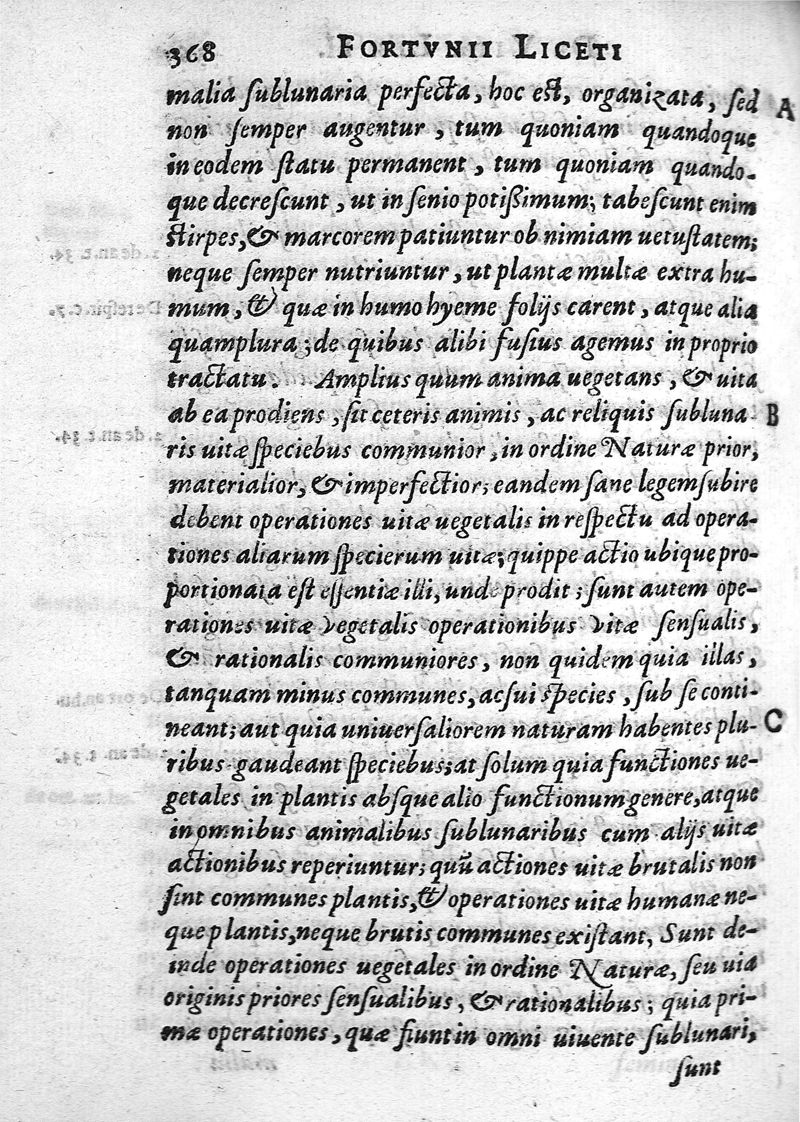 368 FORTVNII LICETI
malia ſublunaria perfecta, hoc eſt, organizata, ſed A
non ſemper augentur, tum quoniam quandoque
in eodem ſtatu permanent, tum quoniam quando-
que decreſcunt, ut in ſenio potiſſimum; tabeſcunt enim
ſtirpes, & marcorem patiuntur ob nimiam uetuſtatem;
neque ſemper nutriuntur, ut plantæ multæ extra hu-
mum, & quæ in humo hyeme folijs carent, atque alia
quamplura; de quibus alibi fuſius agemus in proprio
tractatu. Amplius quum anima uegetans, & uita
ab ea prodiens, ſit ceteris animis, ac reliquis ſubluna B
ris uitæ ſpeciebus communior, in ordine Naturæ prior,
materialior, & imperfectior; eandem ſane legem ſubire
debent operationes uitæ uegetalis in reſpectu ad opera-
tiones aliarum ſpecierum uitæ; quippe actio ubique pro-
portionata eſt eſſentiæ illi, unde prodit; ſunt autem ope-
rationes uitæ vegetalis operationibus vitæ ſenſualis,
& rationalis communiores, non quidem quia illas,
tanquam minus communes, ac ſui ſpecies, ſub ſe conti-
neant; aut quia uniuerſaliorem naturam habentes plu- C
ribus gaudeant ſpeciebus; at ſolum quia functiones ue-
getales in plantis abſque alio functionum genere, atque
in omnibus animalibus ſublunaribus cum alijs uitæ
actionibus reperiuntur; quũ actiones uitæ brutalis non
ſint communes plantis, & operationes uitæ humanæ ne-
que plantis, neque brutis communes exiſtant, Sunt de-
inde operationes uegetales in ordine Naturæ, ſeu uia
originis priores ſenſualibus, & rationalibus; quia pri-
mæ operationes, quæ fiunt in omni uiuente ſublunari,
ſunt